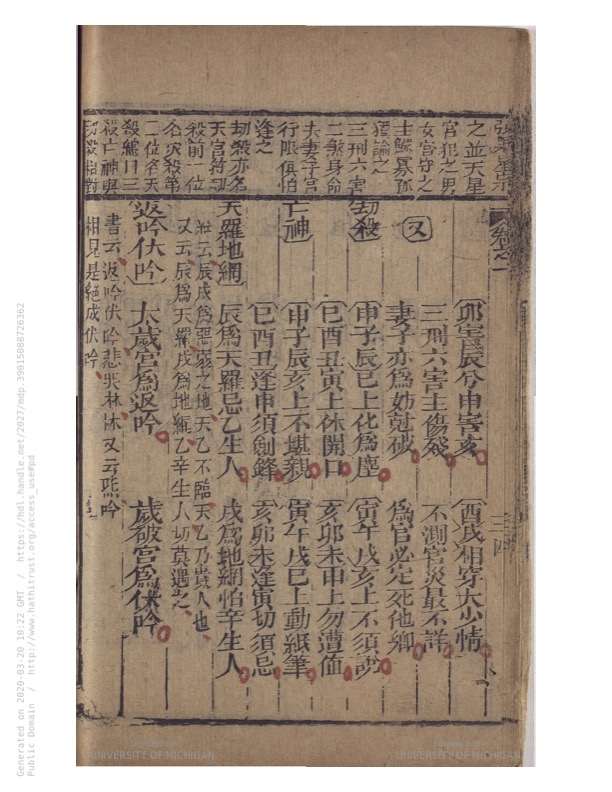 之並天星
官犯之男
女宮守之
主鰥寡孤
獨論之
三刑六害
二煞身命
夫妻子宮
行限俱怕
逢之
劫殺亦名
天宮符
殺前一位
二位名天
殺亡神與
劫殺相對
卯害辰兮申害亥 酉戌相穿太少情
三刑六害主傷殘 不測官災最不詳
又 妻子亦為妨尅破 為官必定死他鄉
劫殺 申子辰巳上化為塵 寅午戌亥上不須說
巳酉丑寅上休開口 亥卯未申上勿遭値
亡神 申子辰亥上不堪親 寅午戌巳上動紙筆
巳酉丑逢申須劍鋒 亥卯未逢寅切須忌
天羅地網 辰為天羅忌乙生人 戌為地網怕辛生人
註云辰戌為惡弱之地天乙不臨天乙乃貴人也
又云辰為天羅戌為地網乙辛生人切莫遇之
返吟伏吟 太歲宮為返吟 歲破宮為伏吟
書云返吟伏吟悲哭淋淋又云
相見是絕成伏吟
三四
Generated on 2020-03-20 10:22 GMT / https://hdl.handle.net/2027/mdp.39015080726362
Public Domain / http://www.hathitrust.org/access_use#pd
UNIVERSITY OF MICHIGAN
UNIVERSITY OF MICHIGAN